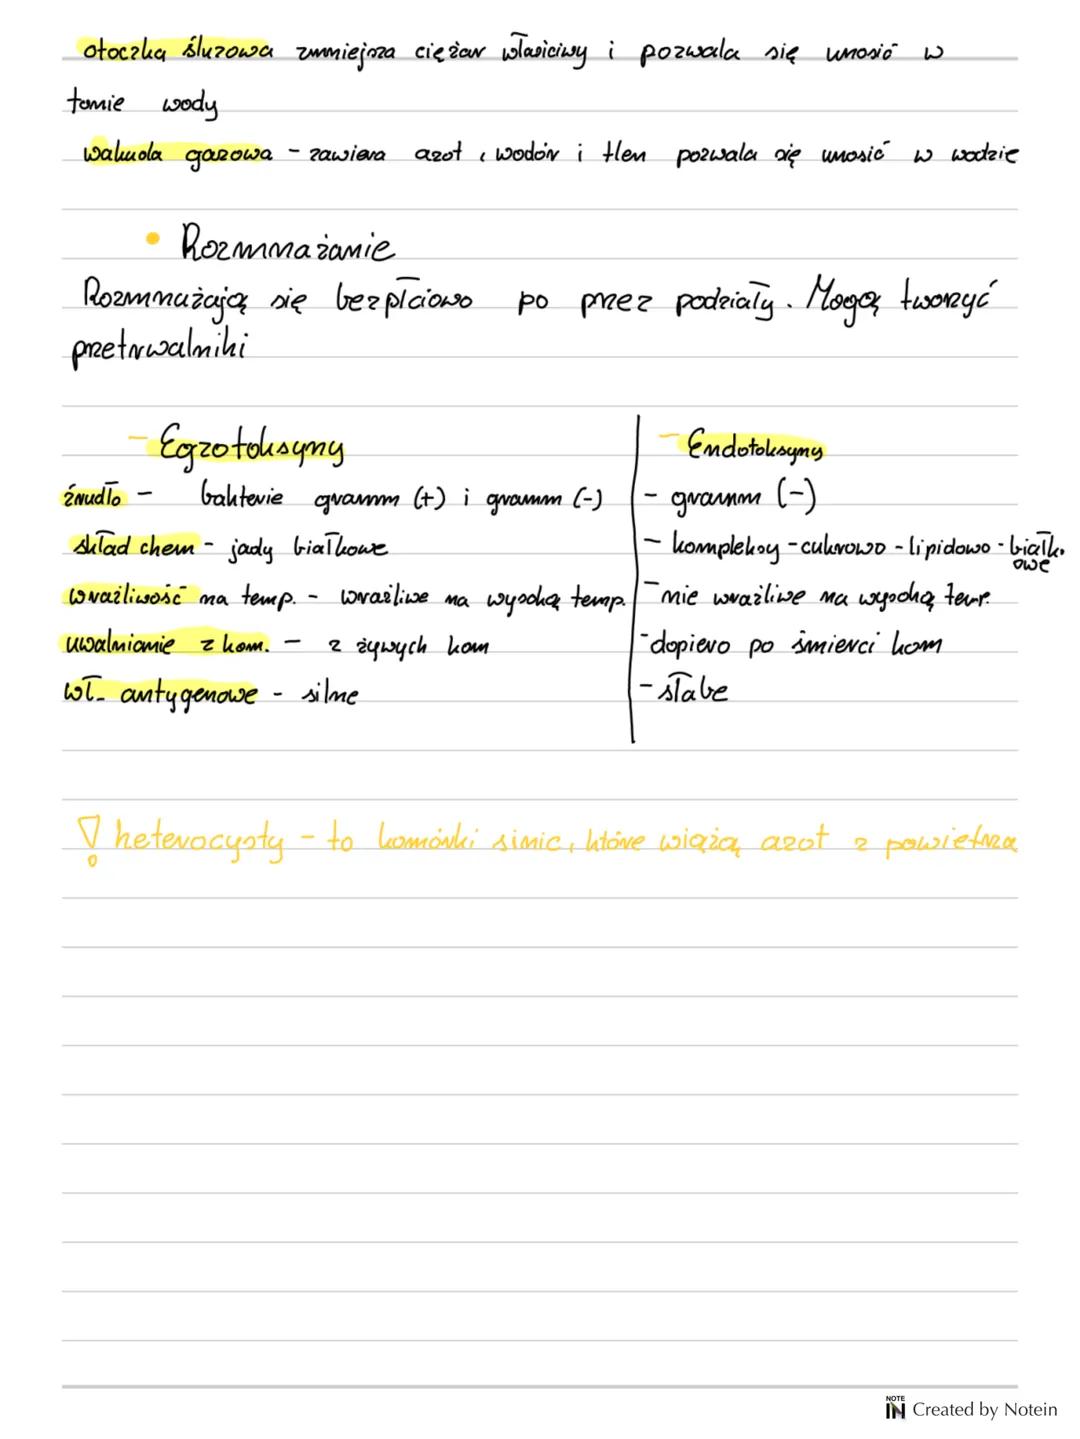 otoczka śluzowa zmniejsza ciężar właściwy i pozwala się unosić w
tomie wody
wakuola gazowa - zawiera azot, wodór i tlen pozwala się unosić w wodzie
• Rozmmażanie
Rozmnażają się bezpłciowo po przez podziały. Mogą tworzyć
przetrwalniki
- Egzotoksyny
źrudło - bakterie gramm (+) i gramm (-)
skład chem - jady białkowe
wrażliwość na temp. - wrażliwe na wysoką temp.
uwalnianie z kom. - z żywych kom
wł. antygenowe - silne
- Endotoksyny
- gramm (-)
- kompleksy - cukrowo - lipidowo - białk.
owe
- nie wrażliwe na wysoką temp.
- dopiero po śmierci kom
- słabe
! heterocysty - to komórki sinic, które wiążą azot z powietrza
NOTE
IN Created by Notein